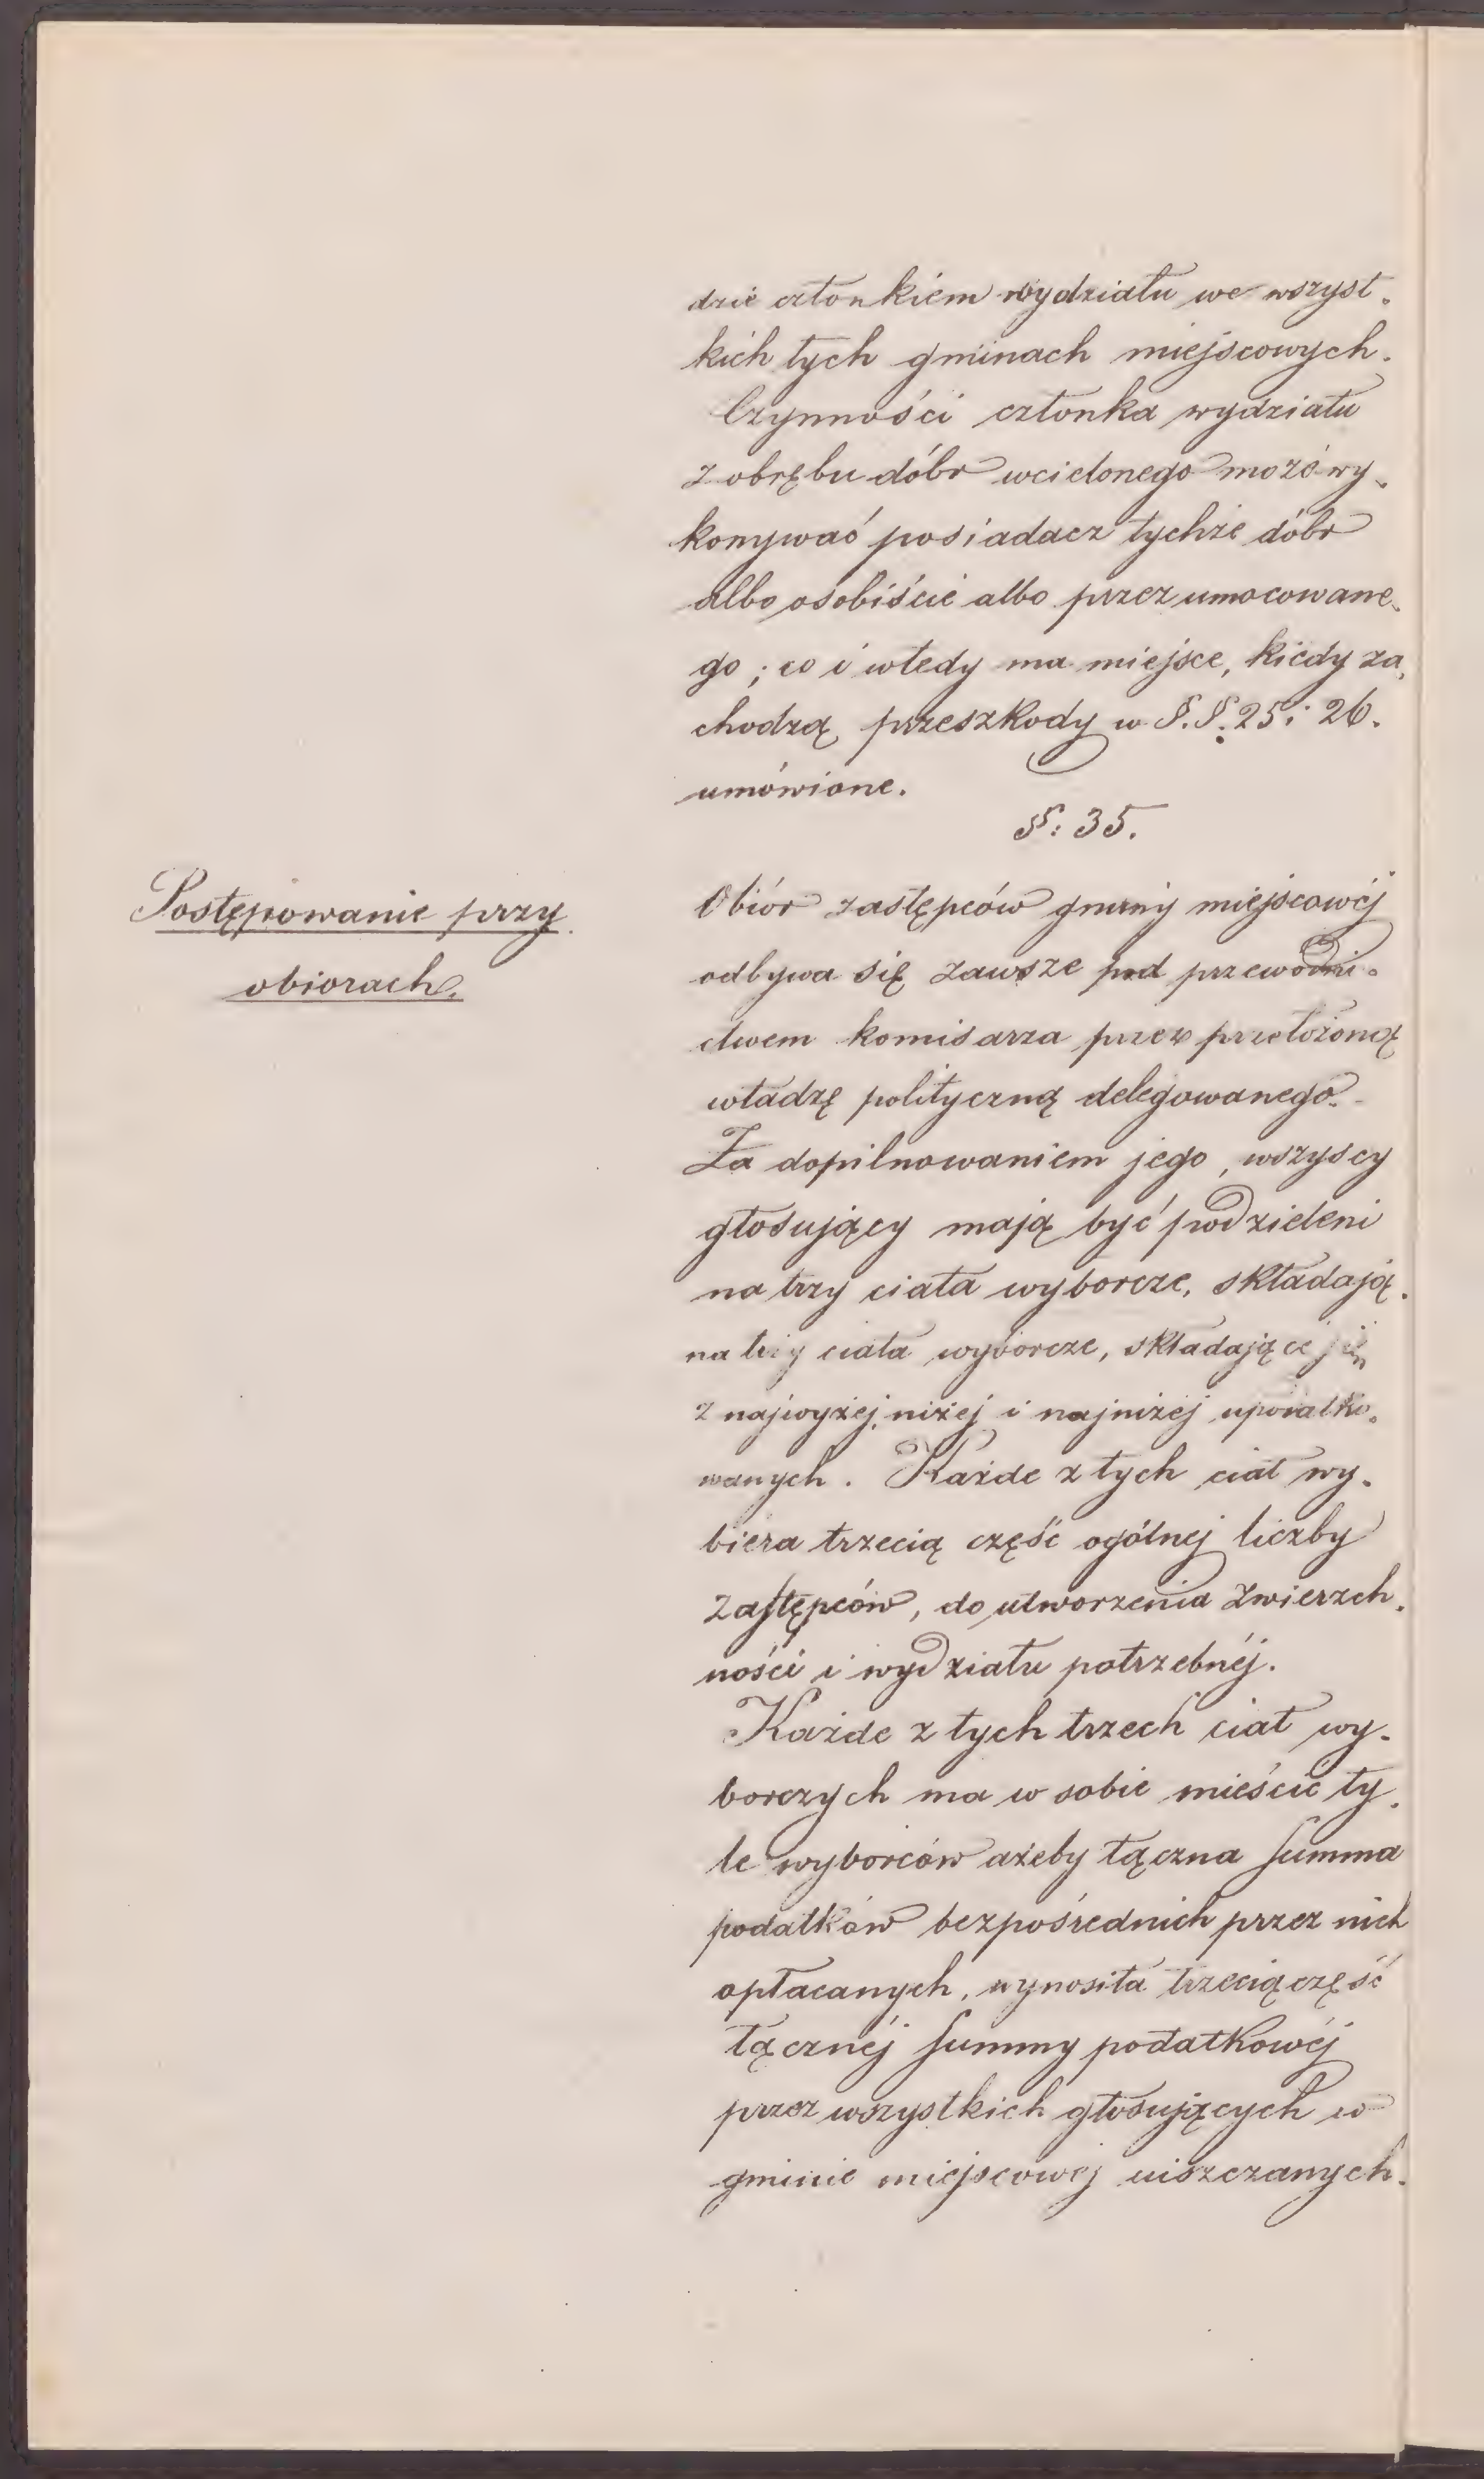 dzie członkiem wydziału we wszyst-
kich tych gminach miejscowych.
Czynności członka wydziału
z obrębu dóbr wcielonego może wy-
konywać posiadacz tychże dóbr
albo osobiście albo przez umocowane-
go; co i wtedy ma miejsce, kiedy za-
chodzą przeszkody w §.§. 25 i 26.
umówione.
§: 35.
Postępowanie przy
obiorach.
Obiór zastępców gminy miejscowéj
odbywa się zawsze pod przewodni-
ctwem komisarza przez przełożoną
władzę polityczną delegowanego.
Za dopilnowaniem jego, wszyscy
głosujący mają być podzieleni
na trzy ciała wyborcze, składają-
na trzy ciała wyborcze, składające się
z najwyżej, niżej i najniżej upodatko-
wanych. Każde z tych ciał wy-
biera trzecią część ogólnej liczby
zastępców, do utworzenia zwierzch-
ności i wydziału potrzebnéj.
Każde z tych trzech ciał wy-
borczych ma w sobie mieścić ty-
le wyborców ażeby łączna summa
podatków bezpośrednich przez nich
opłacanych, wynosiła trzecią część
łącznéj summy podatkowéj
przez wszystkich głosujących w
gminie miejscowej uiszczanych.